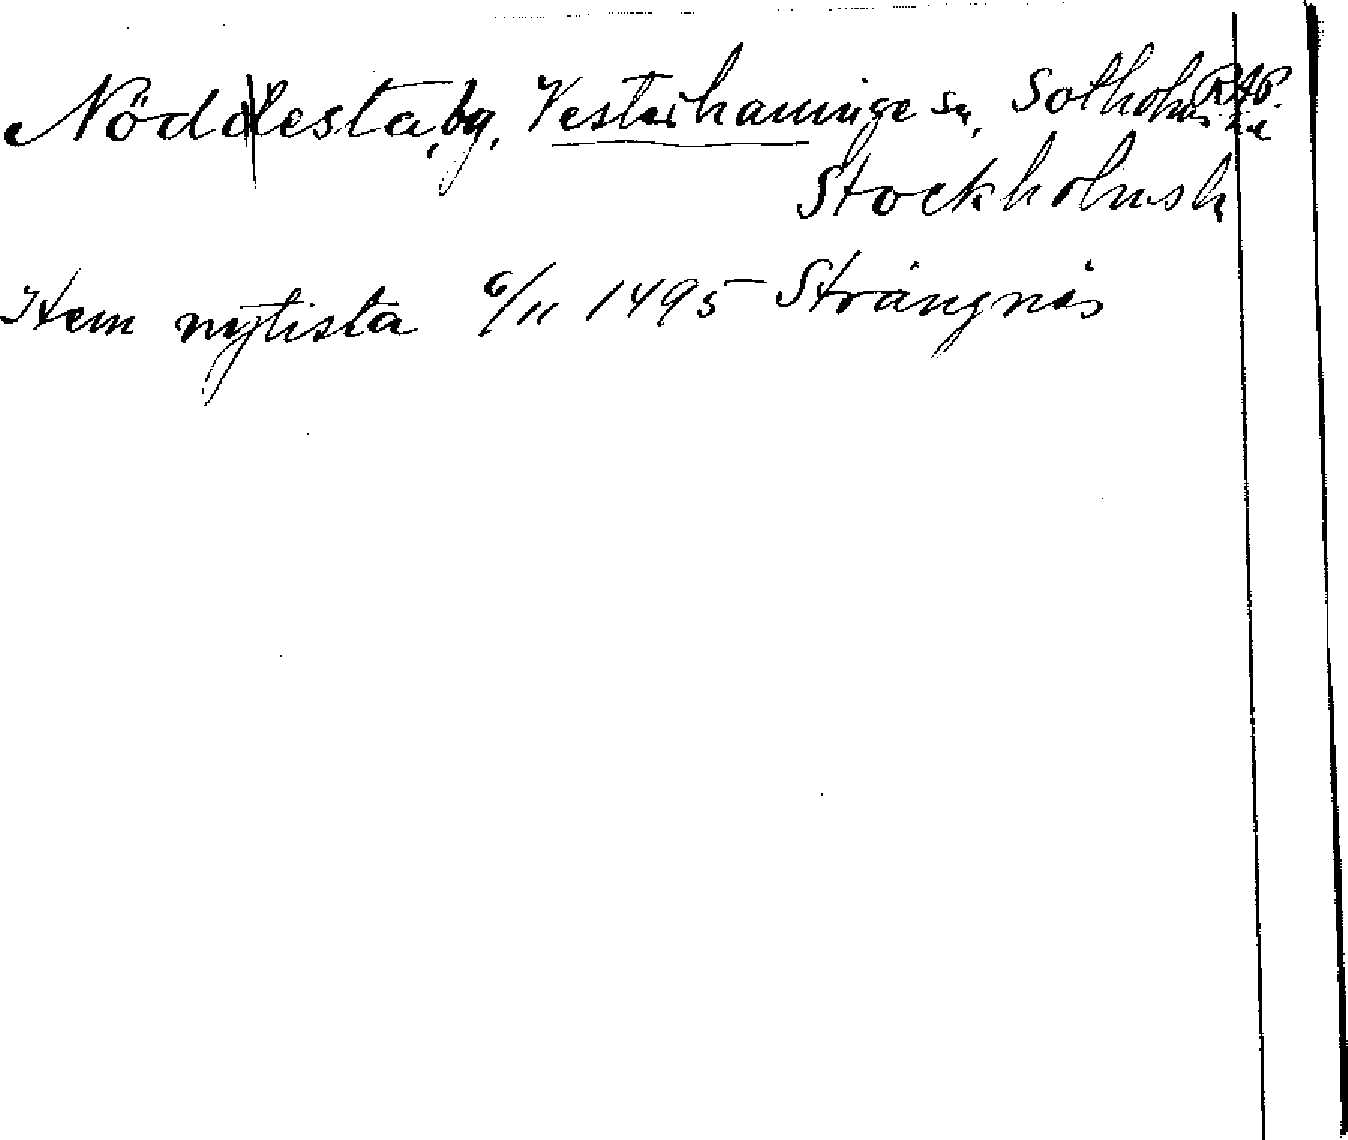 Nöddesta, bg, Vesterhaninge sn, Sotholms RAP.
hd
Stockholmsl
Item nytista 6/11 1495 Strängnäs